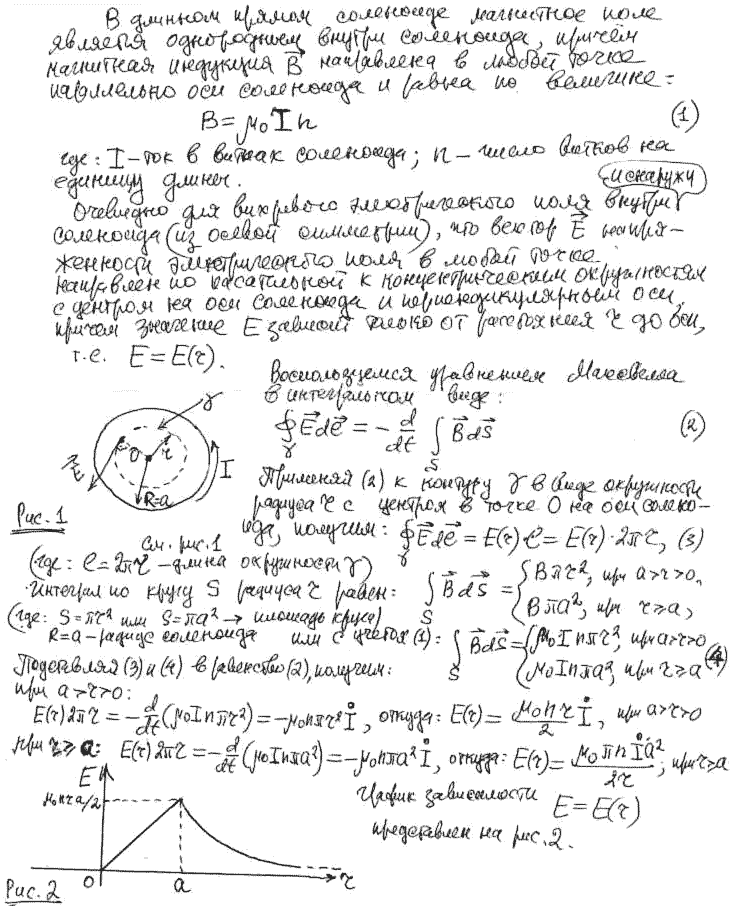 В длинном прямом соленоиде магнитное поле
является однородным внутри соленоида, причём
магнитная индукция B⃗ направлена в любой точке
параллельно оси соленоида и равна по величине:
B = μ₀ I n (1)
где: I – ток в витках соленоида; n – число витков на
единицу длины.
и снаружи
Очевидно для вихревого электрического поля внутри
соленоида (из осевой симметрии), что вектор E⃗ напря-
женности электрического поля в любой точке
направлен по касательной к концентрическим окружностям
с центром на оси соленоида и перпендикулярным оси,
причем значение E зависит только от расстояния r до оси,
т.е. E = E(r).
Воспользуемся уравнением Максвелла
в интегральном виде:
∮_γ E⃗ dℓ⃗ = − d/dt ∫_S B⃗ ds⃗ (2)
γ
O r
E⃗ I
R=a
Рис. 1
Применяя (2) к контуру γ в виде окружности
радиуса r с центром в точке O на оси солено-
ида, получим: ∮_γ E⃗ dℓ⃗ = E(r)·ℓ = E(r)·2πr, (3)
см. рис. 1
(где: ℓ = 2πr – длина окружности γ)
Интеграл по кругу S радиуса r равен: ∫_S B⃗ ds⃗ = { Bπr², при a>r>0,
Bπa², при r≥a,
(где: S=πr² или S=πa² → площадь круга)
R=a – радиус соленоида или с учётом (1): ∫_S B⃗ ds⃗ = { μ₀Inπr², при a>r>0
μ₀Inπa², при r≥a (4)
Подставляя (3) и (4) в равенство (2), получим:
при a>r>0:
E(r)2πr = − d/dt (μ₀Inπr²) = −μ₀nπr² İ, откуда: E(r) = μ₀nr/2 İ, при a>r>0
при r≥a: E(r)2πr = − d/dt (μ₀Inπa²) = −μ₀nπa² İ, откуда: E(r) = μ₀πn İ a²/2r, при r≥a
График зависимости E = E(r)
представлен на рис. 2.
E
μ₀nra/2
O a r
Рис. 2